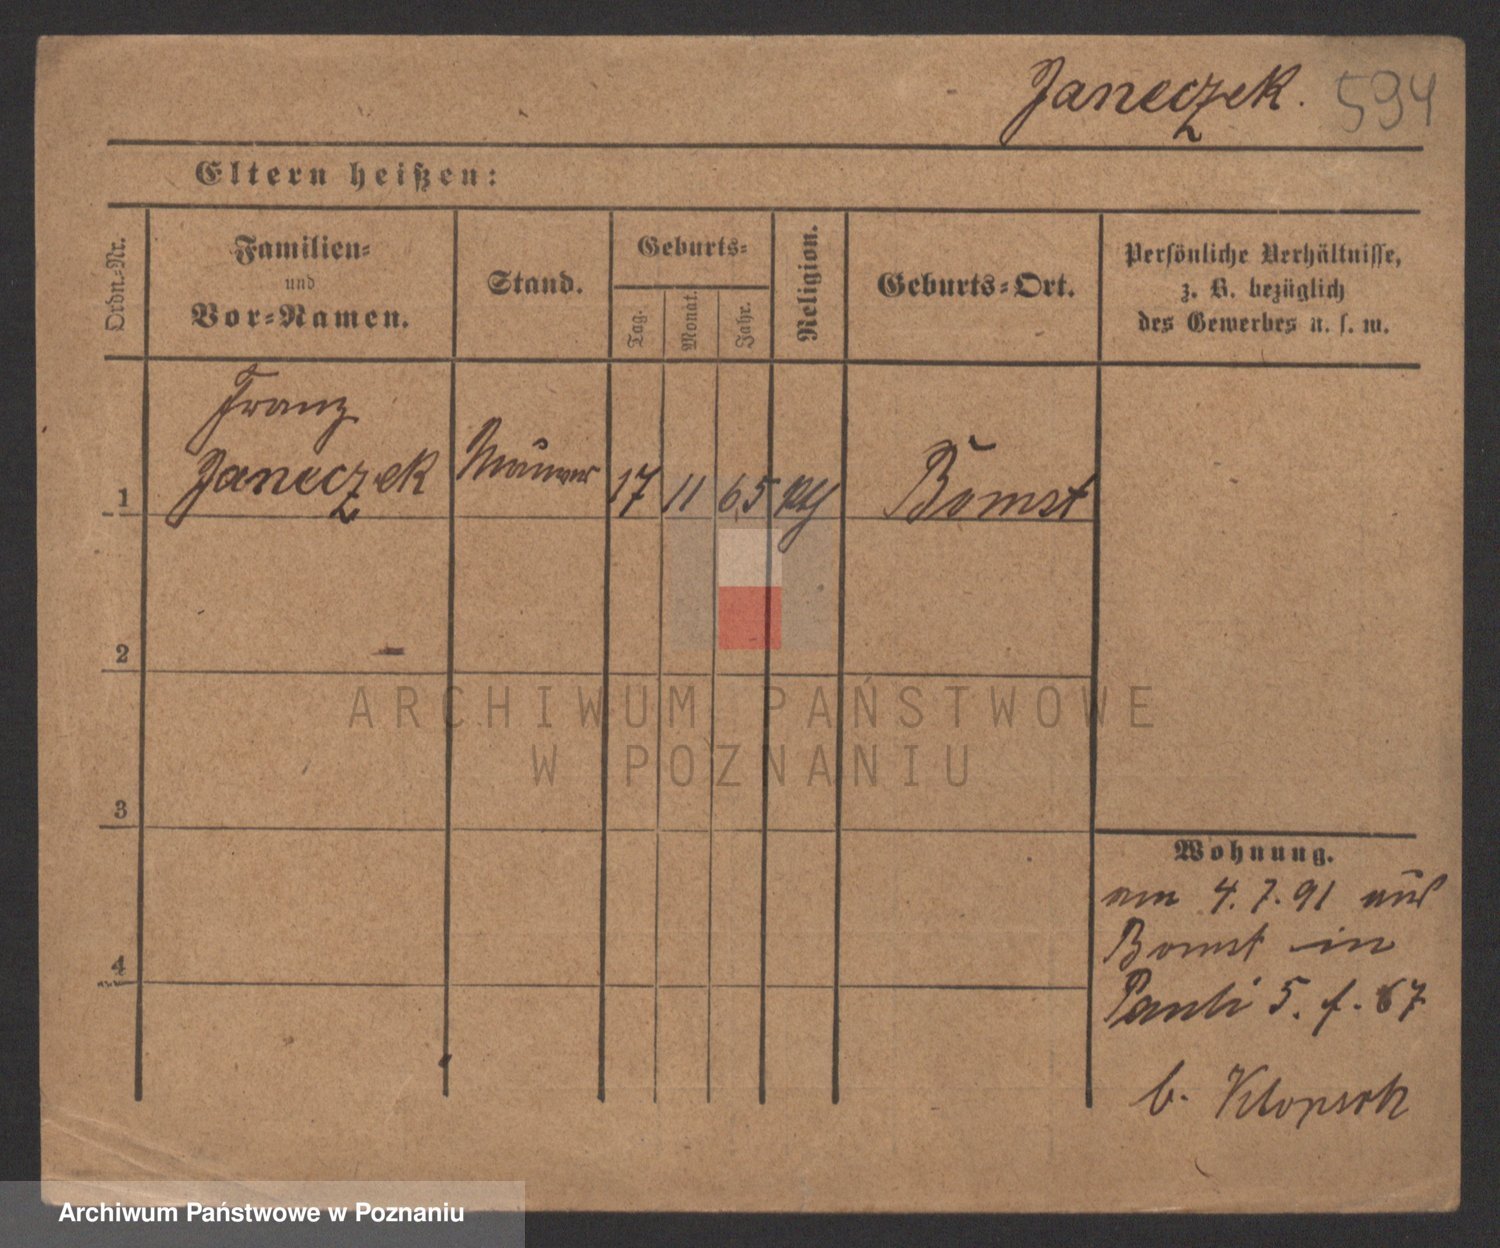 Janeczek. 594
Eltern heißen:
Ordn.-Nr.
Familien-
und
Vor-Namen.
Stand.
Geburts-
Tag.
Monat.
Jahr.
Religion.
Geburts-Ort.
Persönliche Verhältnisse,
z. B. bezüglich
des Gewerbes u. s. w.
Franz
1 Janeczek Maurer 17 11 65 Bomst
2
3
4
Wohnung.
am 4. 7. 91 aus
Bomst in
Pauli 5. 67
b. Klopsch
ARCHIWUM PAŃSTWOWE
W POZNANIU
Archiwum Państwowe w Poznaniu